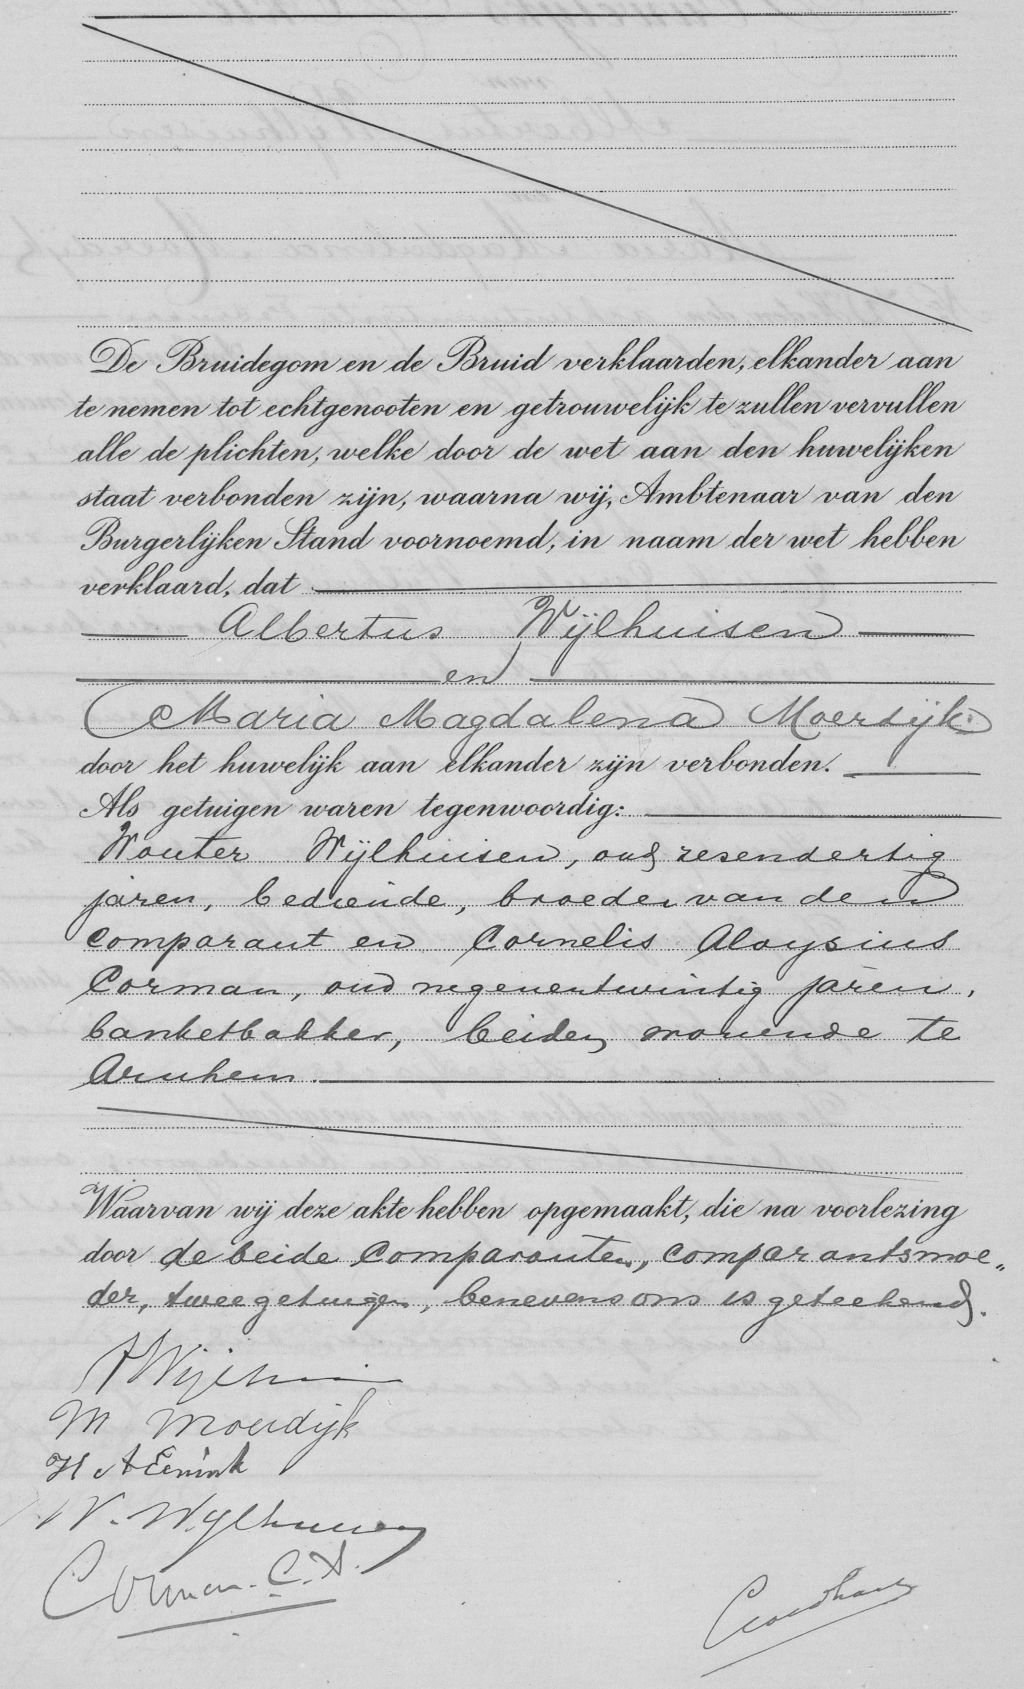 De Bruidegom en de Bruid verklaarden, elkander aan
te nemen tot echtgenooten en getrouwelijk te zullen vervullen
alle de plichten, welke door de wet aan den huwelijken
staat verbonden zijn, waarna wij, Ambtenaar van den
Burgerlijken Stand voornoemd, in naam der wet hebben
verklaard, dat
Albertus Wijlhuisen
en
Maria Magdalena Moerdijk
door het huwelijk aan elkander zijn verbonden.
Als getuigen waren tegenwoordig:
Wouter Wijlhuisen, oud zesendertig
jaren, bediende, broeder van den
comparant en Cornelis Aloysius
Corman, oud negenentwintig jaren,
banketbakker, beiden wonende te
Arnhem.
Waarvan wij deze akte hebben opgemaakt, die na voorlezing
door de beide Comparanten, comparantsmoe„
der, twee getuigen, benevens ons is geteekend.
A Wijlhuisen
M Moerdijk
H A Eenink
W. Wijlhuisen
Corman. C. A.